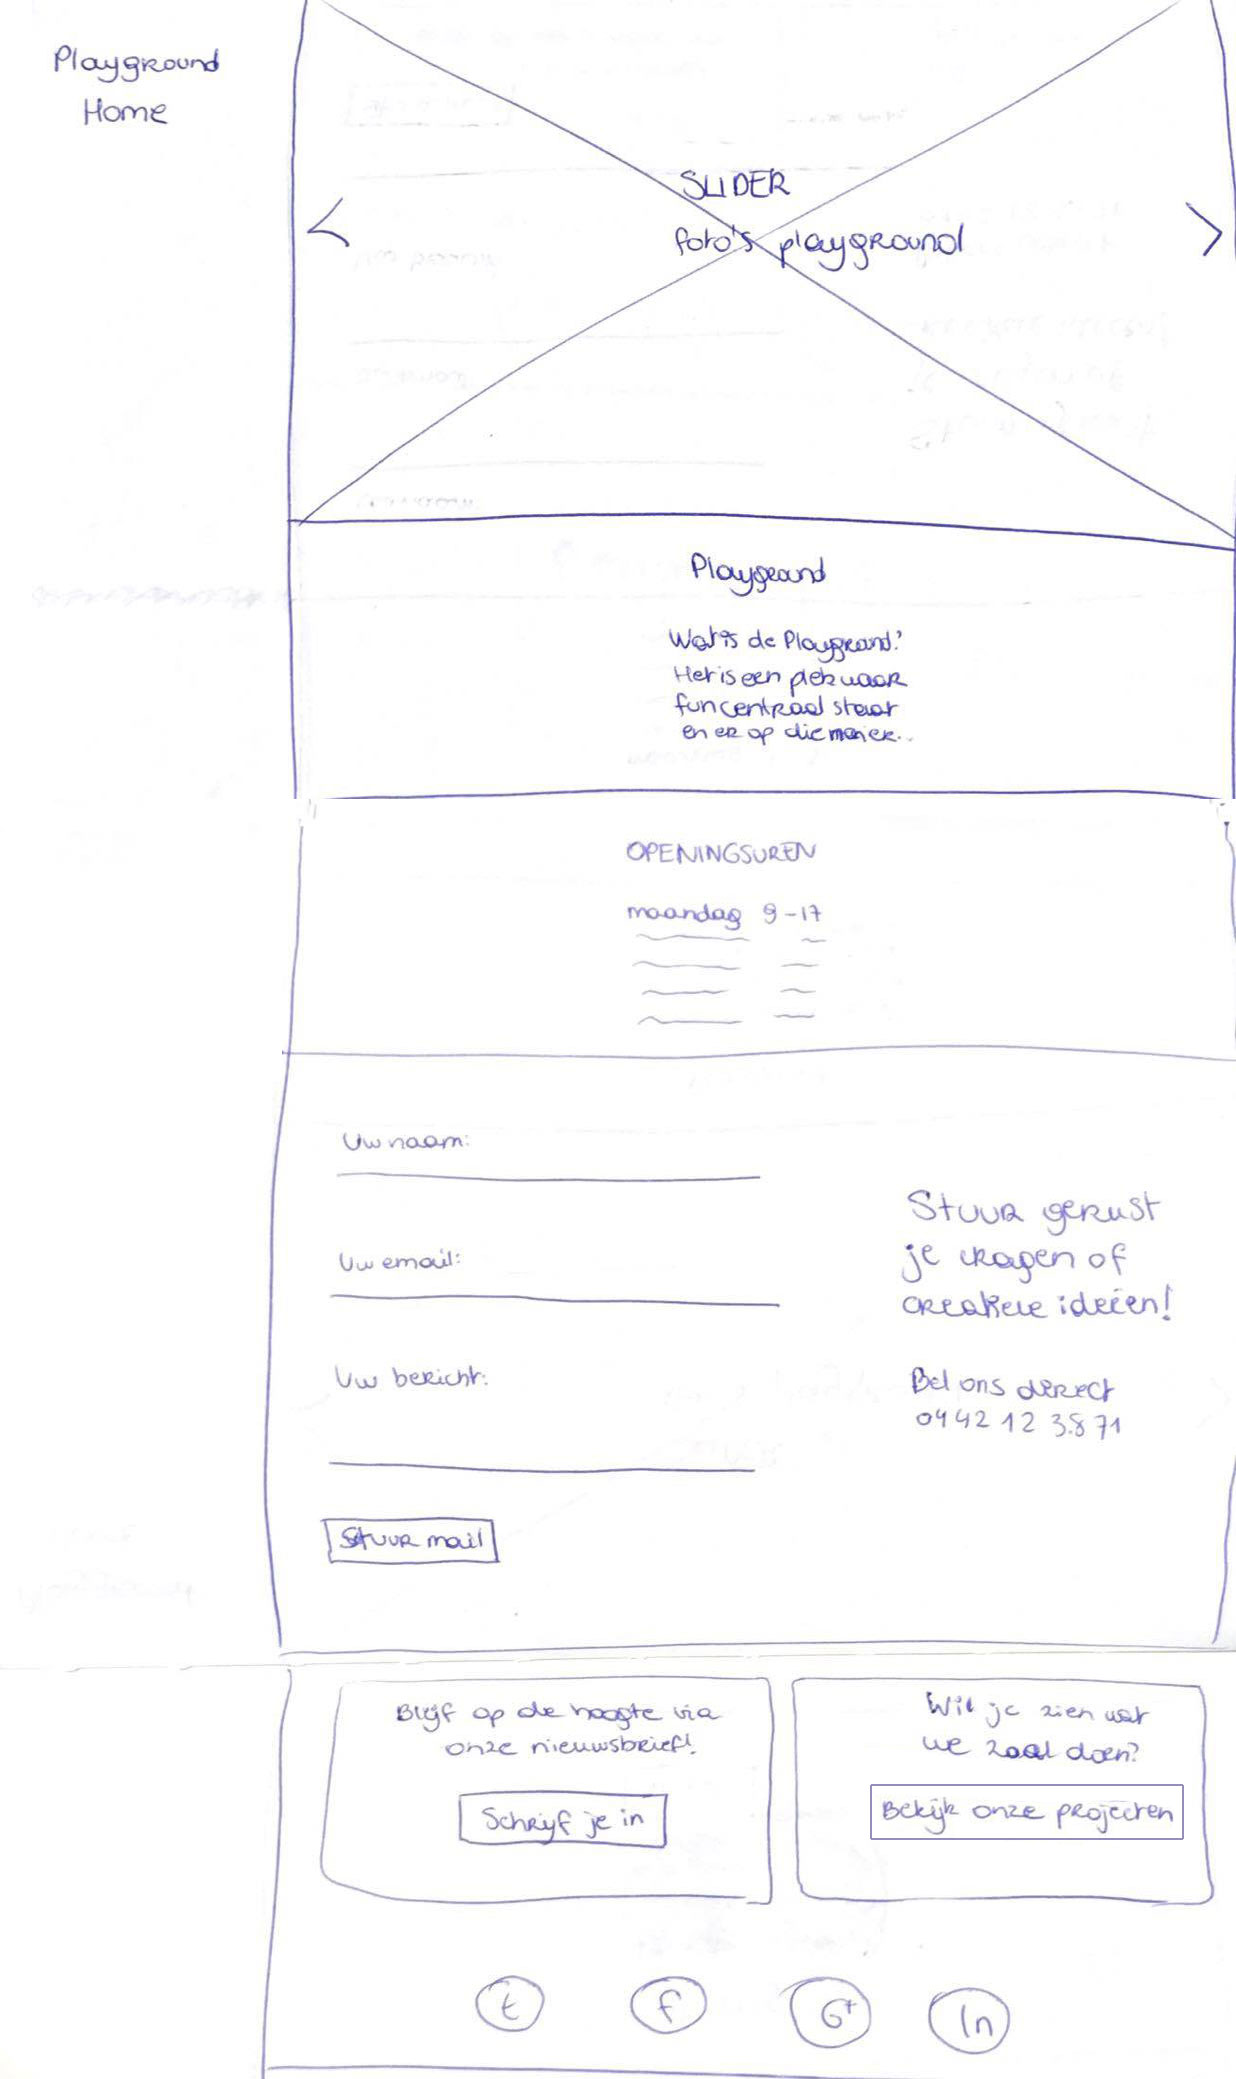 Playground
Home
SLIDER
foto's playground
Playground
Wat is de Playground?
Het is een plek waar
fun centraal staat
en er op die manier..
OPENINGSUREN
maandag 9-17
Uw naam:
Uw email:
Uw bericht:
Stuur mail
Stuur gerust
je vragen of
creatieve ideeën!
Bel ons direct
0442 12 38 71
Blijf op de hoogte via
onze nieuwsbrief!
Schrijf je in
Wil je zien wat
we zoal doen?
Bekijk onze projecten
t
f
G+
In